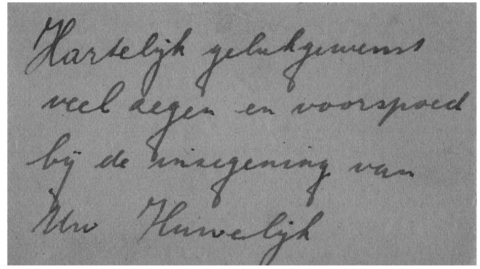 Hartelijk gelukgewenst
veel zegen en voorspoed
bij de inzegening van
Uw Huwelijk